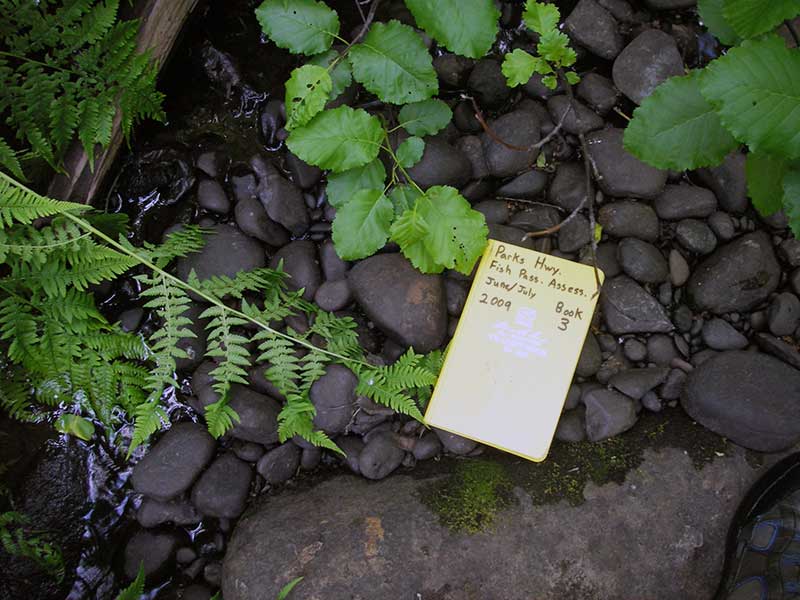 Parks Hwy.
Fish Pass. Assess.
June/July
2009 Book
3